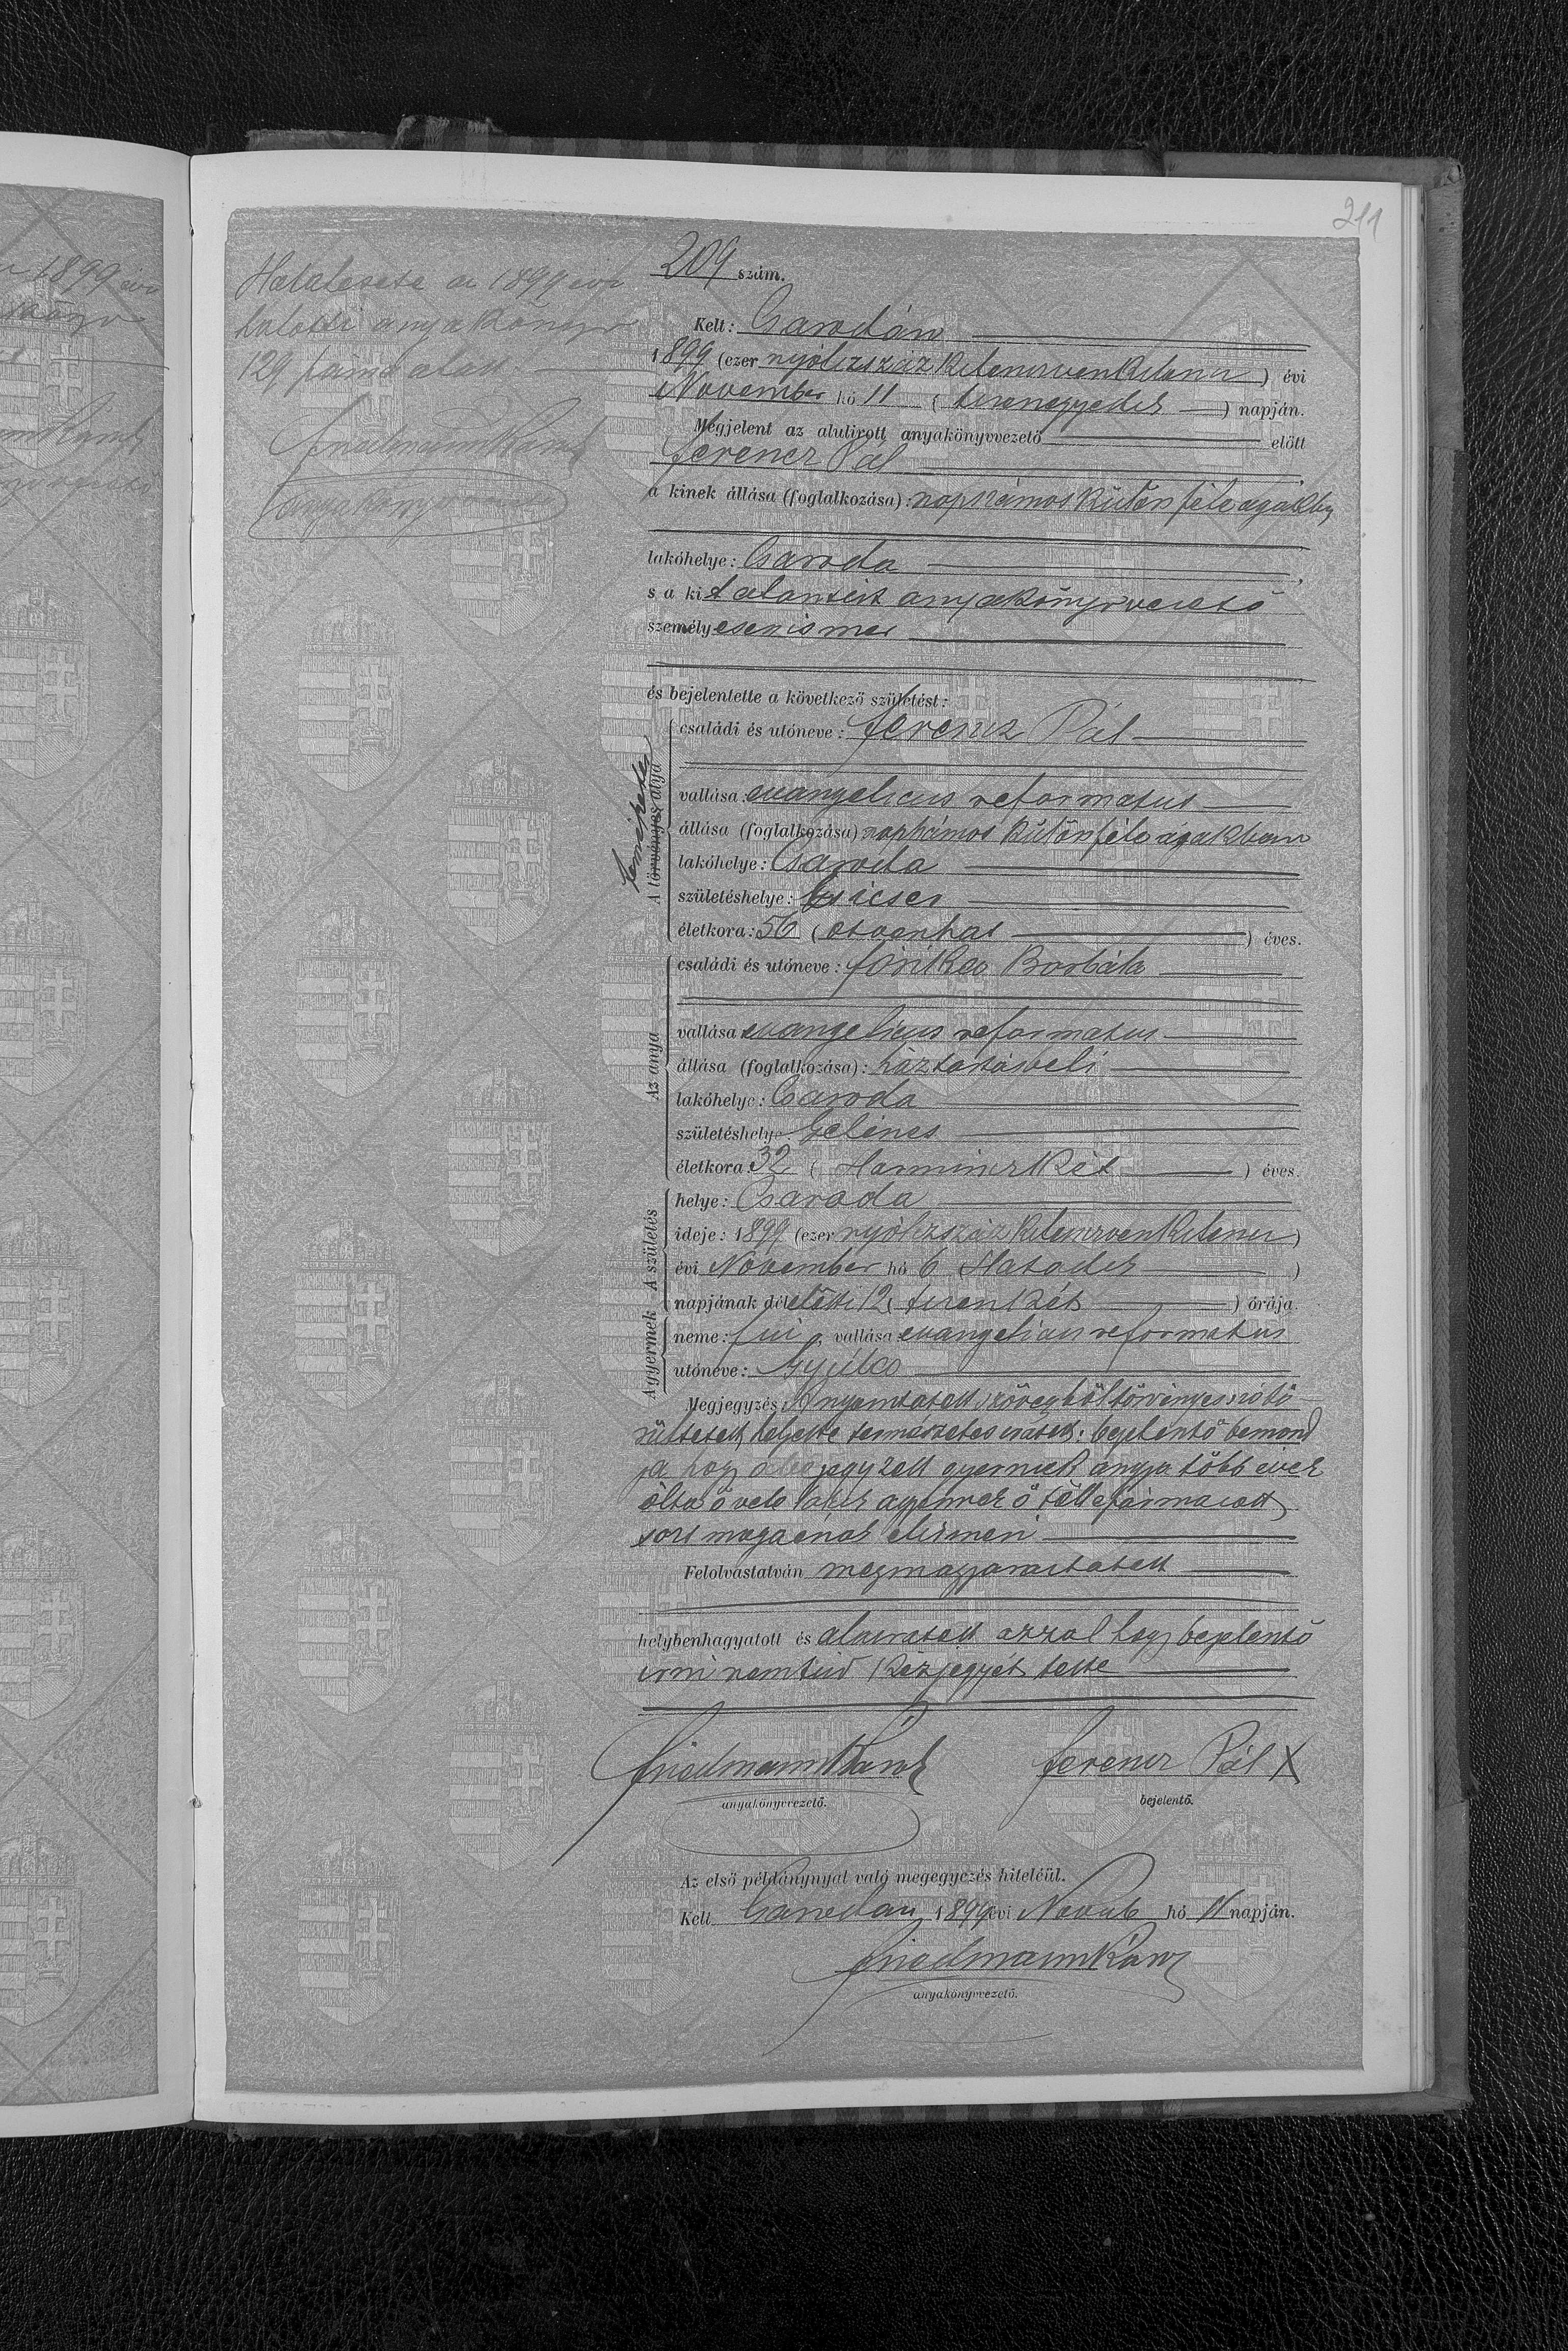 211
Halálesete az 1899 évi
halotti anyakönyv
129 száma alatt
Friedmann Károly
anyakönyvvezető
209 szám.
Kelt: Csarodán
1899 (ezer nyólczszáz kilenczvenkilencz) évi
November hó 11 (tizenegyedik) napján.
Megjelent az alulirott anyakönyvvezető előtt
Ferencz Pál
a kinek állása (foglalkozása): napszámos külön féle ágakban
lakóhelye: Csaroda
s a kit alantirt anyakönyvvezető
személyesen ismer
és bejelentette a következő születést:
A törvényes atyja
természetes
családi és utóneve: Ferencz Pál
vallása: evangelicus reformatus
állása (foglalkozása) napszámos külön féle ágakban
lakóhelye: Csaroda
születéshelye: Csicser
életkora: 56 (ötvenhat) éves.
Az anya
családi és utóneve: Borbála
vallása evangelicus reformatus
állása (foglalkozása): háztartásbeli
lakóhelye: Csaroda
születéshelye: Gelénes
életkora: 32 (Harminczkét) éves.
A gyermek A születés
helye: Csaroda
ideje: 1899 (ezer nyólczszáz kilenczvenkilencz)
évi November hó 6 Hatodik )
napjának délelőtti 12 (tizenkét) órája.
neme: fiu, vallása: evangelicus reformatus
utóneve: Gyula
Megjegyzés: A nyomtatott szövegből törvényes szó tö-
röltetett, helyette természetes iratott: bejelentő bemond
ja hogy a bejegyzett gyermek anyja több éve
ólta ő vele lakik a gyermek ő tőlle származott
s azt magáénak elismeri
Felolvastatván megmagyaráztatott
helybenhagyatott és aláiratott azzal hogy bejelentő
irni nem tud kézjegyét tette
Friedmann Károly Ferencz Pál X
anyakönyvvezető. bejelentő.
Az első példánynyal való megegyezés hiteléül.
Kelt Csarodán 1899 évi Novemb hó 11 napján.
Friedmann Károly
anyakönyvvezető.